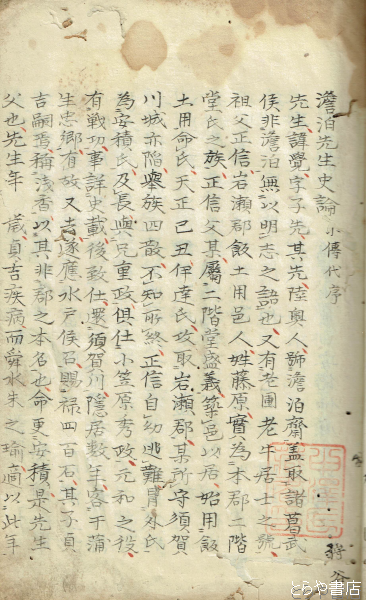 澹泊先生史論 小傳代序
先生諱覺字子先其先陸奧人號澹泊齋盖取諸葛武
侯非澹泊無以明志之語也又有老圃老牛居士之號
祖父正信岩瀬郡飯土用邑人姓藤原實為本郡二階
堂氏之族正信父某屬二階堂盛義築邑以居始用飯
土用命氏天正己丑伊達氏攻取岩瀬郡某所守須賀
川城亦陷舉族四散不知所終正信自幼逃難冒外氏
為安積氏及長與兄重政俱仕小笠原秀政元和之役
有戰功事詳史載後致仕還須賀川隱居數年客于蒲
生忠鄉有故又去遂應水戶侯召賜祿四百石其子貞
吉嗣舊稱淺香以其非郡之本名也命更安積是先生
父也先生年 歲貞吉疾病而舜水朱之瑜適以此年
とらや書店